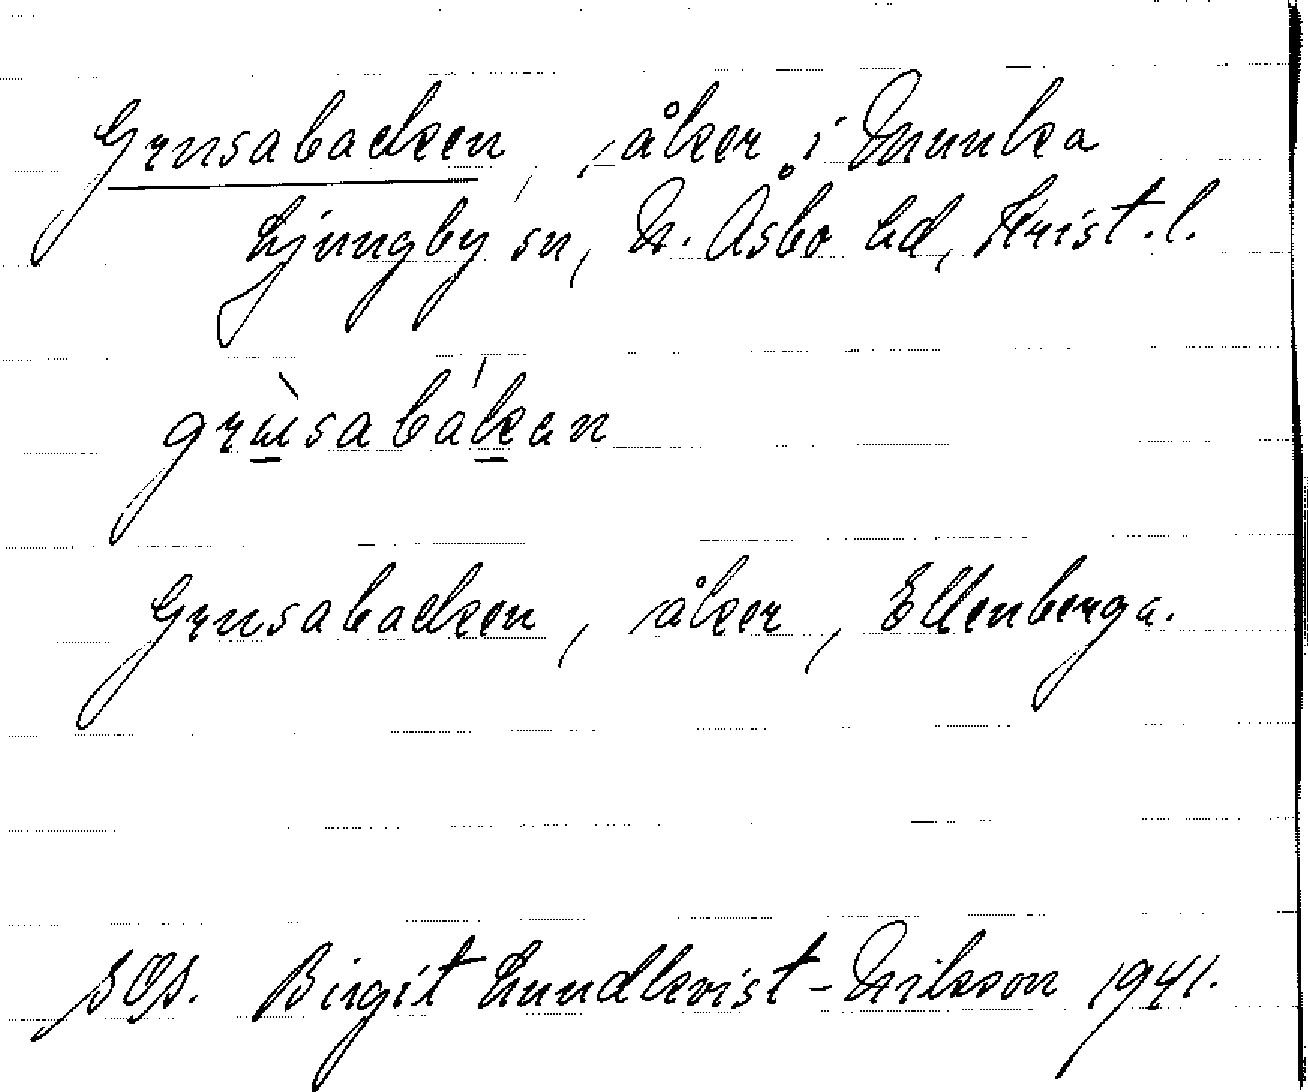 Grusabacken, åker i Munka
Ljungby sn, N. Åsbo hd, Krist. l.
grùsabákan
Grusabacken, åker, Ellenberga.
SOS. Birgit Lundkvist-Nilsson 1941.